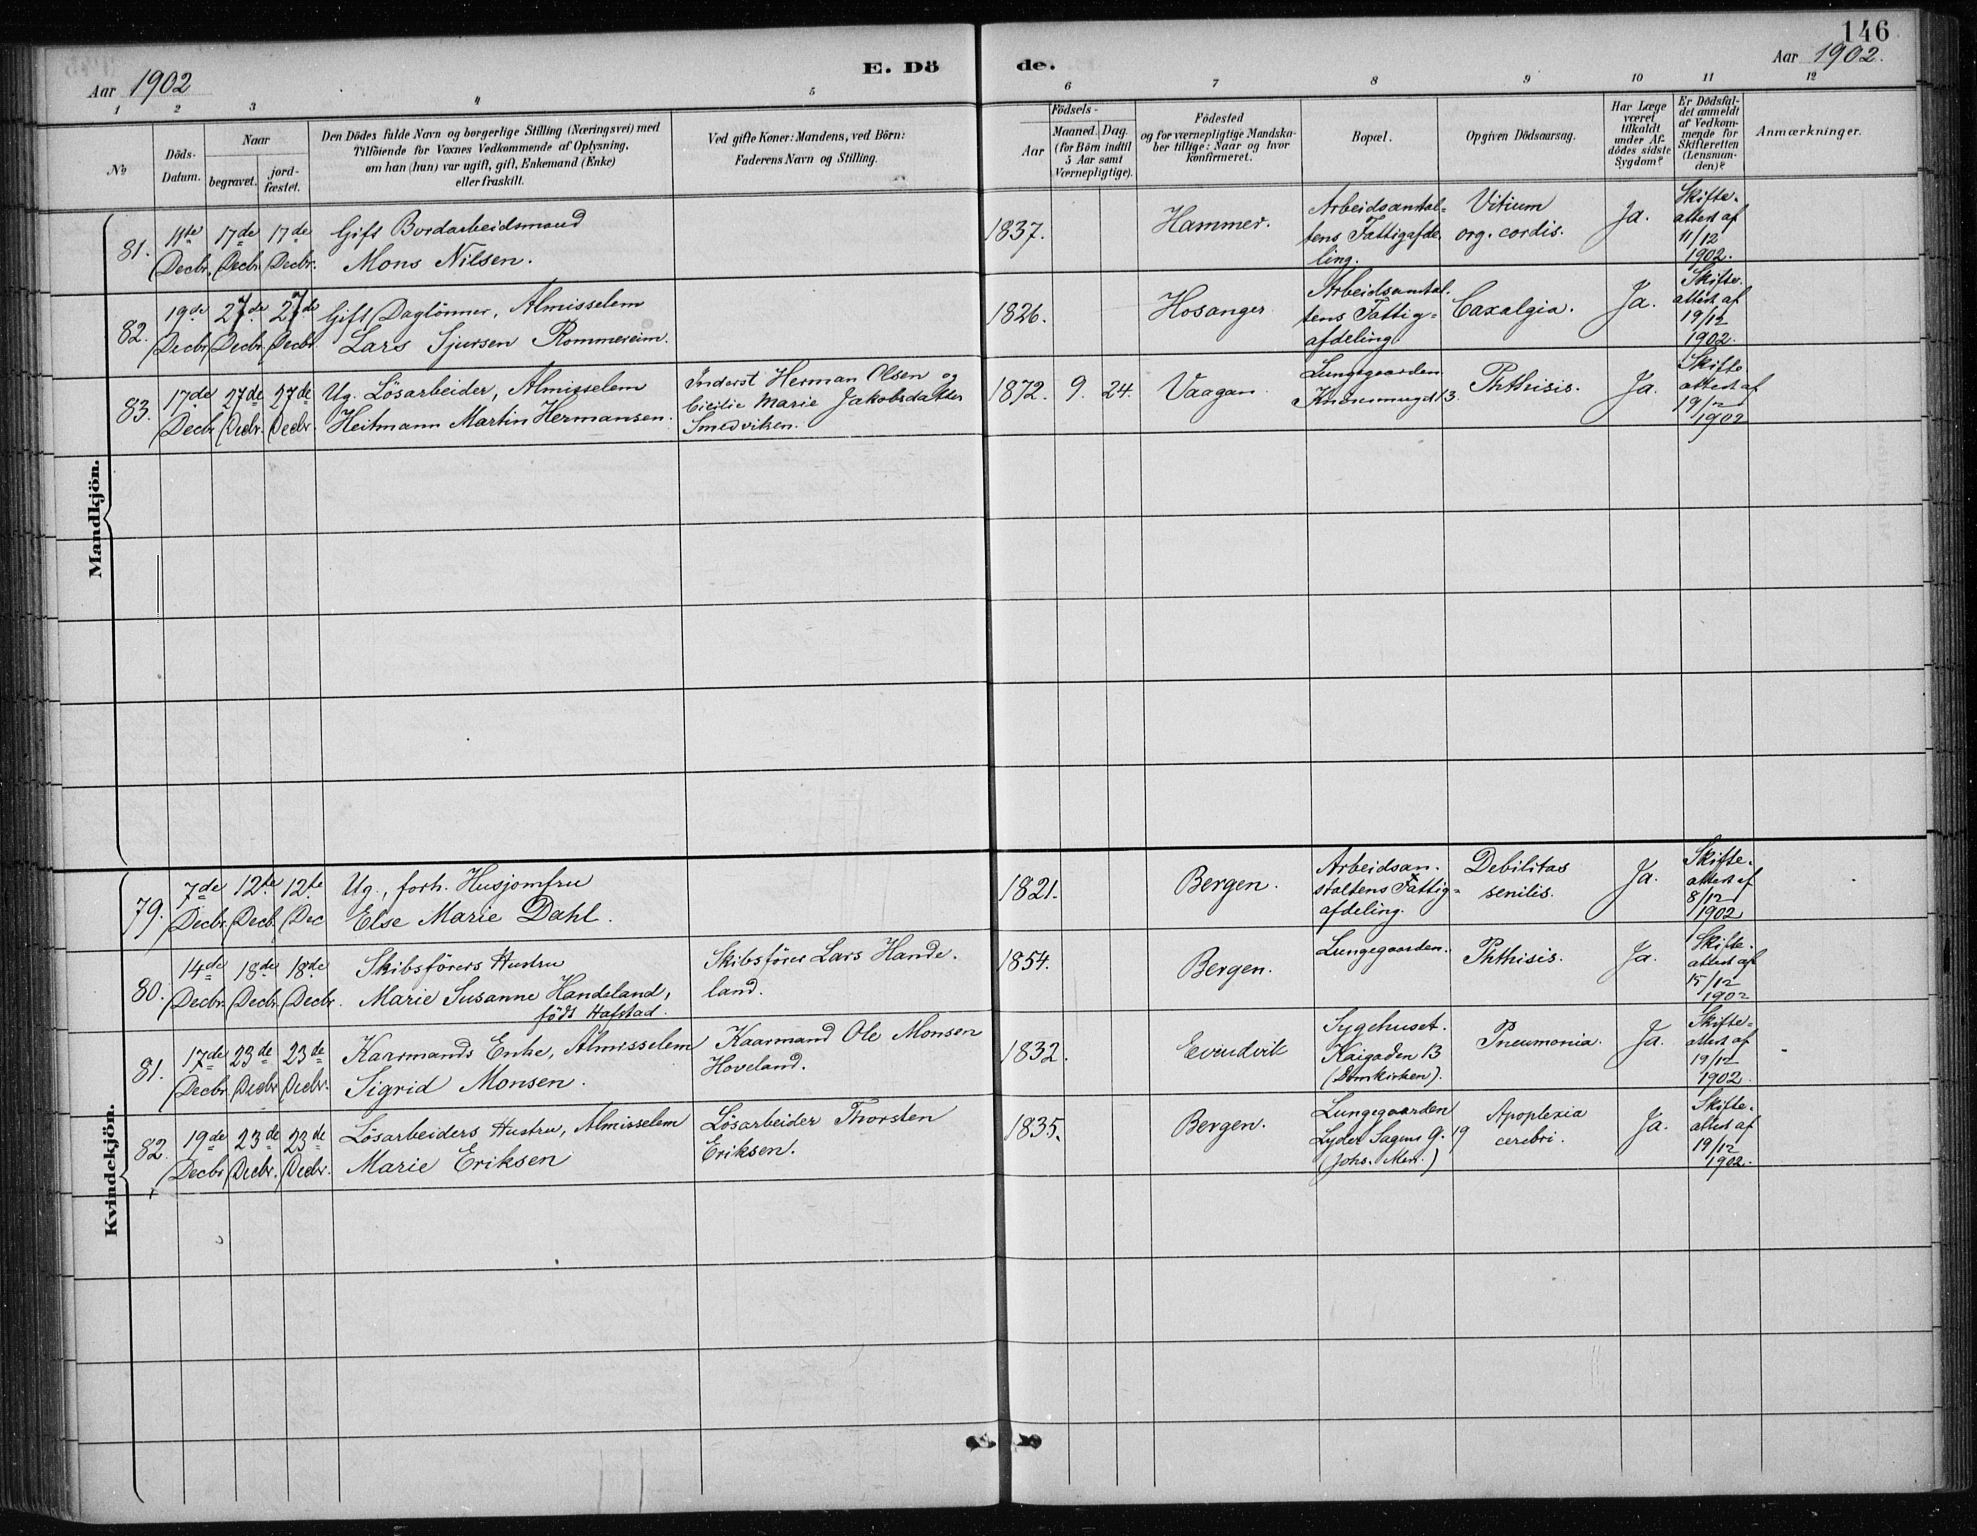 146
Aar 1902
E. Dö
de.
Aar 1902.
1 2 3 4 5 6 7 8 9 10 11 12
№
Döds-
Datum.
Naar
begravet.
jord-
fæstet.
Den Dödes fulde Navn og borgerlige Stilling (Næringsvei) med
Tilföiende for Voxnes Vedkommende af Oplysning,
om han (hun) var ugift, gift, Enkemand (Enke)
eller fraskilt.
Ved gifte Koner: Mandens, ved Börn:
Faderens Navn og Stilling.
Födsels-
Aar
Maaned. Dag.
(for Börn indtil
5 Aar samt
Værnepligtige).
Födested
og for værnepligtige Mandska-
ber tillige: Naar og hvor
konfirmeret.
Bopæl.
Opgiven Dödsaarsag.
Har Læge
været
tilkaldt
under Af-
dödes sidste
Sygdom?
Er Dödsfal-
det anmeldt
af Vedkom-
mende for
Skifteretten
(Lensman-
den)?
Anmærkninger.
Mandkjön.
81. 11te Decbr. 17de Decbr. 17de Decbr.
Gift Bordarbeidsmand
Mons Nilsen.
1837.
Hammer.
Arbeidsanstal-
tens Fattigafde-
ling.
Vitium
org. cordis.
Ja.
Skifte-
attest af
11/12
1902.
82. 19de Decbr. 27de Decbr. 27de Decbr.
Gift Daglönner, Almisselem
Lars Sjursen Rommereim.
1826.
Hosanger
Arbeidsanstal-
tens Fattig-
afdeling
Coxalgia.
Ja.
Skifte-
attest af
19/12
1902.
83. 17de Decbr. 27de Decbr. 27de Decbr.
Ug. Lösarbeider, Almisselem
Heitmann Martin Hermansen.
Inderst Herman Olsen og
Cicilie Marie Jakobsdatter
Smedviken.
1872. 9. 24.
Vaagan
Lungegaarden
13.
Phthisis.
Ja.
Skifte
attest af
19/12
1902
Kvindekjön.
79. 7de Decbr. 12te Decb. 12te Dec
Ug., forh. Husjomfru
Else Marie Dahl.
1821.
Bergen.
Arbeidsan-
staltens Fattig-
afdeling.
Debilitas
senilis.
Ja.
Skifte-
attest af
8/12
1902
80. 14de Decbr. 18de Decbr. 18de Decbr.
Skibsförers Hustru
Marie Susanne Handeland,
födt Hafstad.
Skibsförer Lars Hande-
land.
1854.
Bergen.
Lungegaarden.
Phthisis.
Ja.
Skifte-
attest af
15/12
1902
81. 17de Decbr. 23de Decbr. 23de Decbr.
Kaarmands Enke, Almisselem
Sigrid Monsen.
Kaarmand Ole Monsen
Hoveland.
1832.
Evindvik
Sygehuset.
Kaigaden 13
(Domkirken).
Pneumonia.
Ja.
Skifte-
attest af
19/12
1902.
82. 19de Decbr. 23de Decbr. 23de Decbr.
Lösarbeiders Hustru, Almisselem
Marie Eriksen
Lösarbeider Thorsten
Eriksen.
1835.
Bergen.
Lungegaarden
Lyder Sagens G. 19
(Johs. Men.)
Apoplexia
cerebri.
Ja.
Skifte-
attest af
19/12
1902.